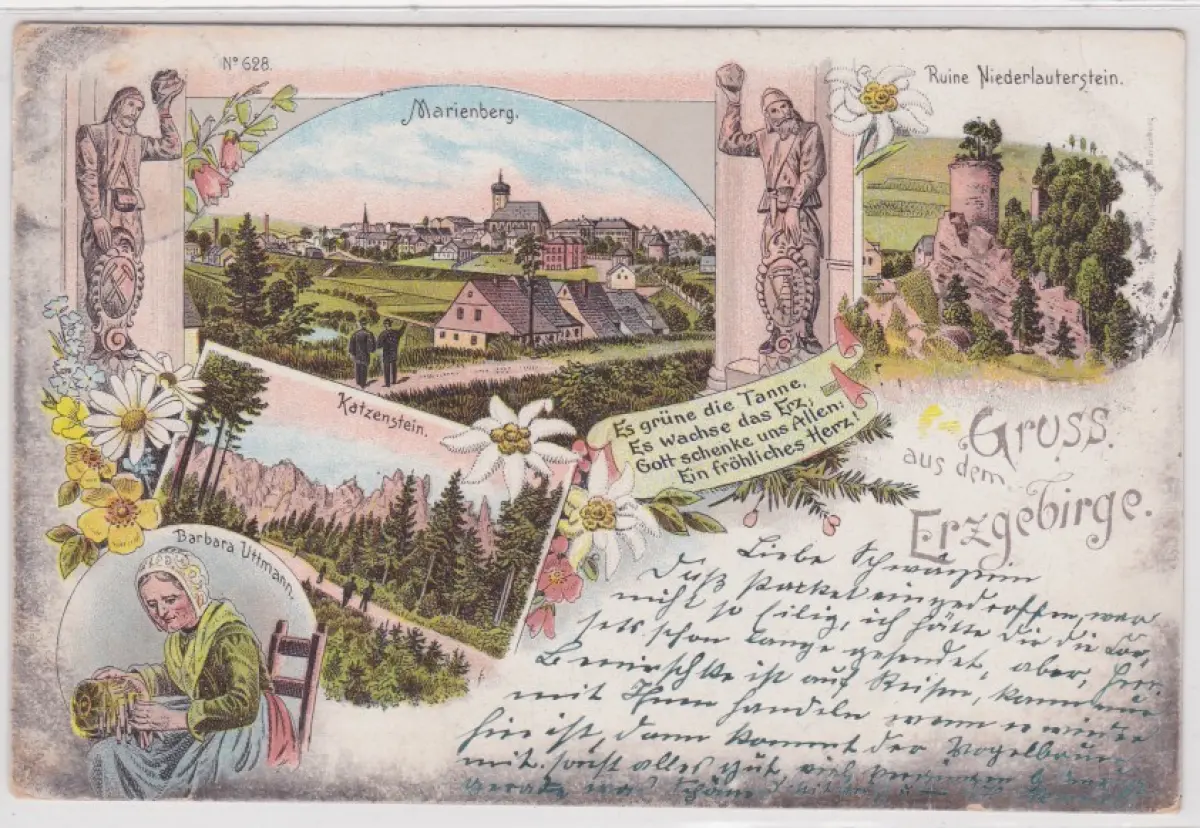 Nº 628.
Marienberg.
Ruine Niederlauterstein.
Katzenstein.
Es grüne die Tanne,
Es wachse das Erz,
Gott schenke uns Allen:
Ein fröhliches Herz!
Gruss
aus dem
Erzgebirge.
Barbara Uttmann.
Liebe Schwägerin
Daß Packet eingedroffen, war
nicht so eilig, ich hätte dir die
schon lange gesendet, aber, Herr
ist auf Reisen, kann nur
mit Ihm handeln wenn er wieder
hir ist, dann kommt der Vogelbauer
mit. sonst alles gut, viel